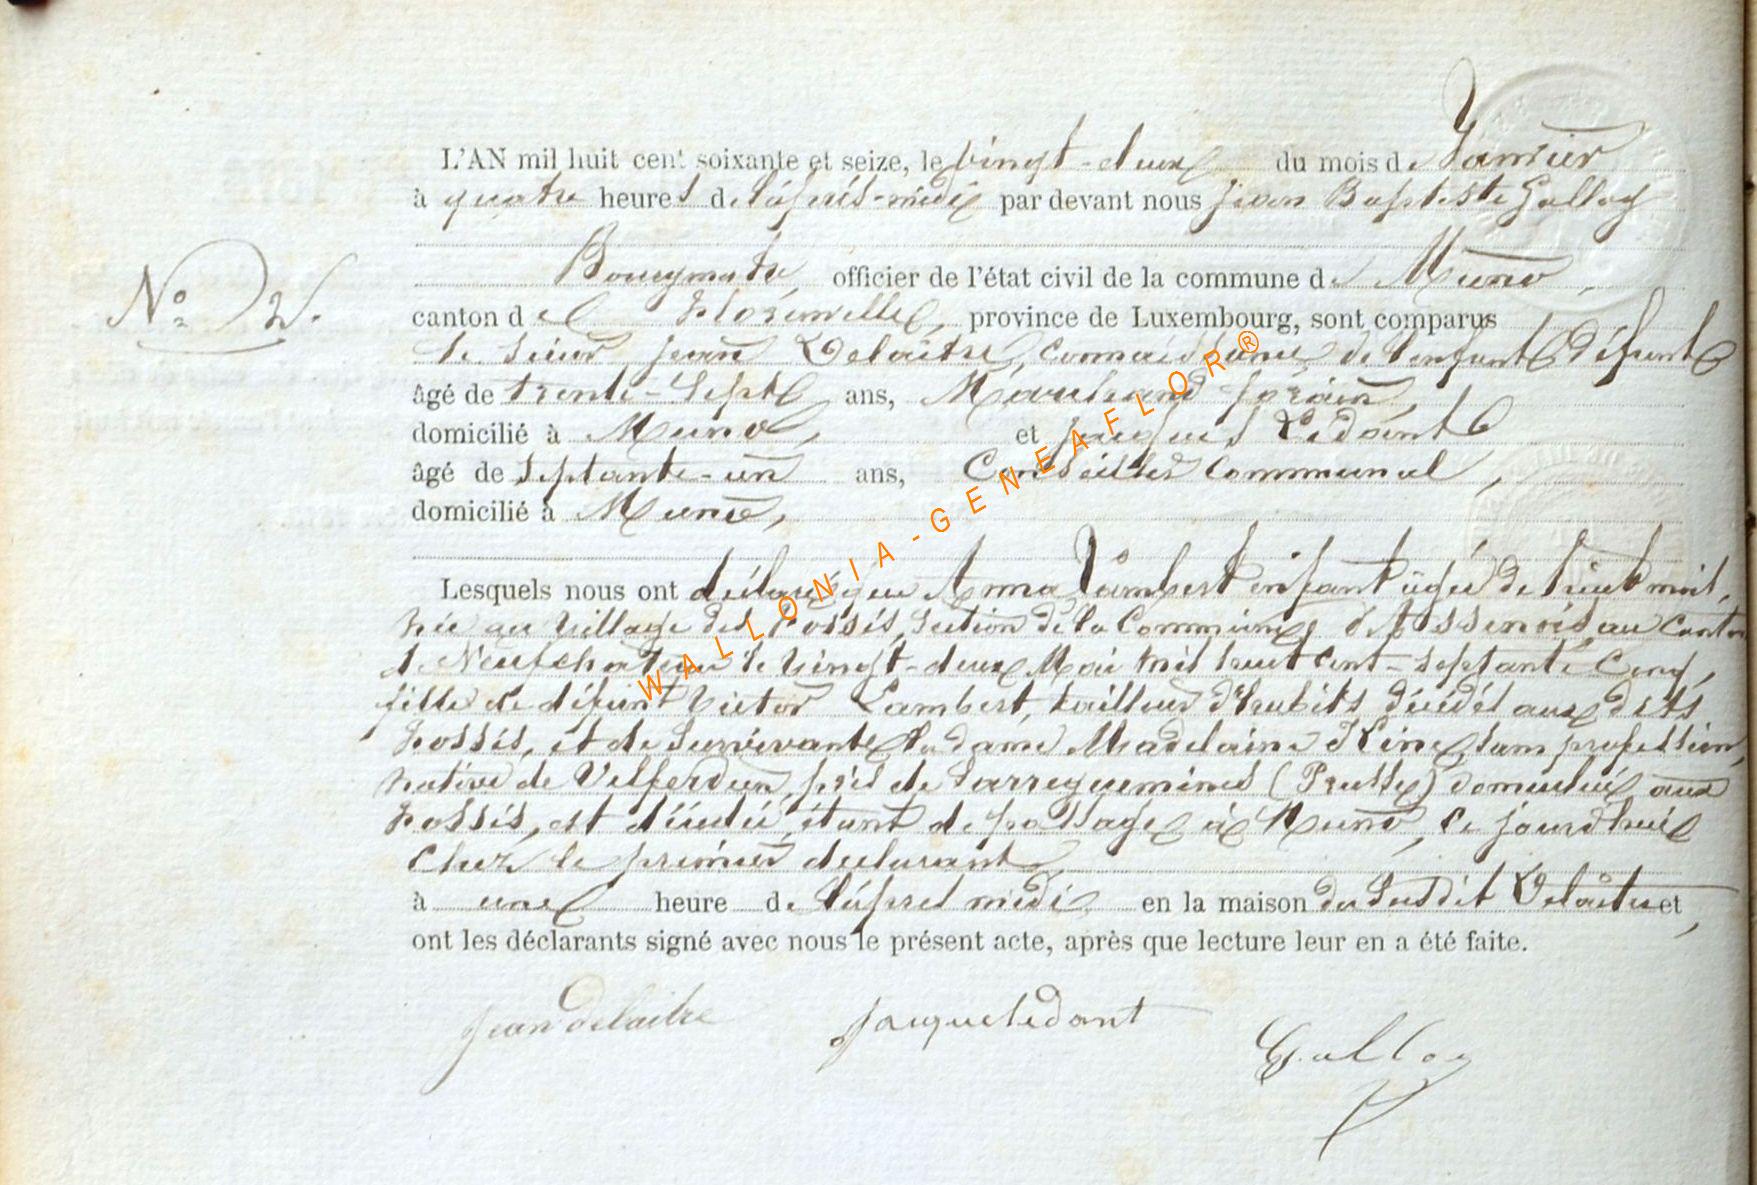 L'AN mil huit cent soixante et seize, le vingt-deux du mois de Janvier
à quatre heures de l'après-midi par devant nous Jean Baptiste Galloy
Bourgmestre, officier de l'état civil de la commune de Muno,
N° 2.
canton de Florenville, province de Luxembourg, sont comparus
le sieur Jean Delaitre, connaissance de l'enfant défunt
âgé de trente-sept ans, Marchand forain,
domicilié à Muno, et Jacques Ledant
âgé de septante-un ans, Conseiller Communal,
domicilié à Muno,
Lesquels nous ont déclaré que Anna Lambert enfant âgée de huit mois,
née au village des Fossés, section de la Commune d'Assenois, au canton
de Neufchateau le vingt-deux Mai mil huit cent-septante Cinq,
fille de défunt Victor Lambert, tailleur d'habits décédé aux dits
Fossés, et de survivante la dame Madelaine Kline, sans profession,
native de Velferden, près de Sarreguemines (Prusse) domiciliée aux
Fossés, est décédée, étant de passage à Muno, ce jourd'hui
chez le premier déclarant
à une heure de l'après midi en la maison du susdit Delaitre et
ont les déclarants signé avec nous le présent acte, après que lecture leur en a été faite.
Jean delaitre Jacque ledant Galloy
WALLONIA-GENEAFLOR®